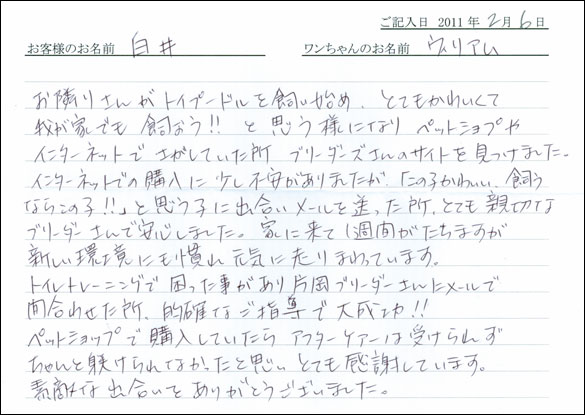 ご記入日 2011年2月6日
お客様のお名前 白井 ワンちゃんのお名前 ウィリアム
お隣りさんがトイプードルを飼い始め、とてもかわいくて
我が家でも飼おう!!と思う様になりペットショップや
インターネットでさがしていた所 ブリーダーズさんのサイトを見つけました。
インターネットでの購入に少し不安がありましたが、「この子かわいい、飼う
ならこの子!!」と思う子に出合いメールを送った所、とても親切な
ブリーダーさんで安心しました。家に来て1週間がたちますが
新しい環境にも慣れ元気に走りまわっています。
トイレトレーニングで困った事があり片岡ブリーダーさんにメールで
問合わせた所、的確なご指導で大成功!!
ペットショップで購入していたらアフターケアーは受けられず
ちゃんと躾けられなかったと思い とても感謝しています。
素敵な出合いをありがとうございました。